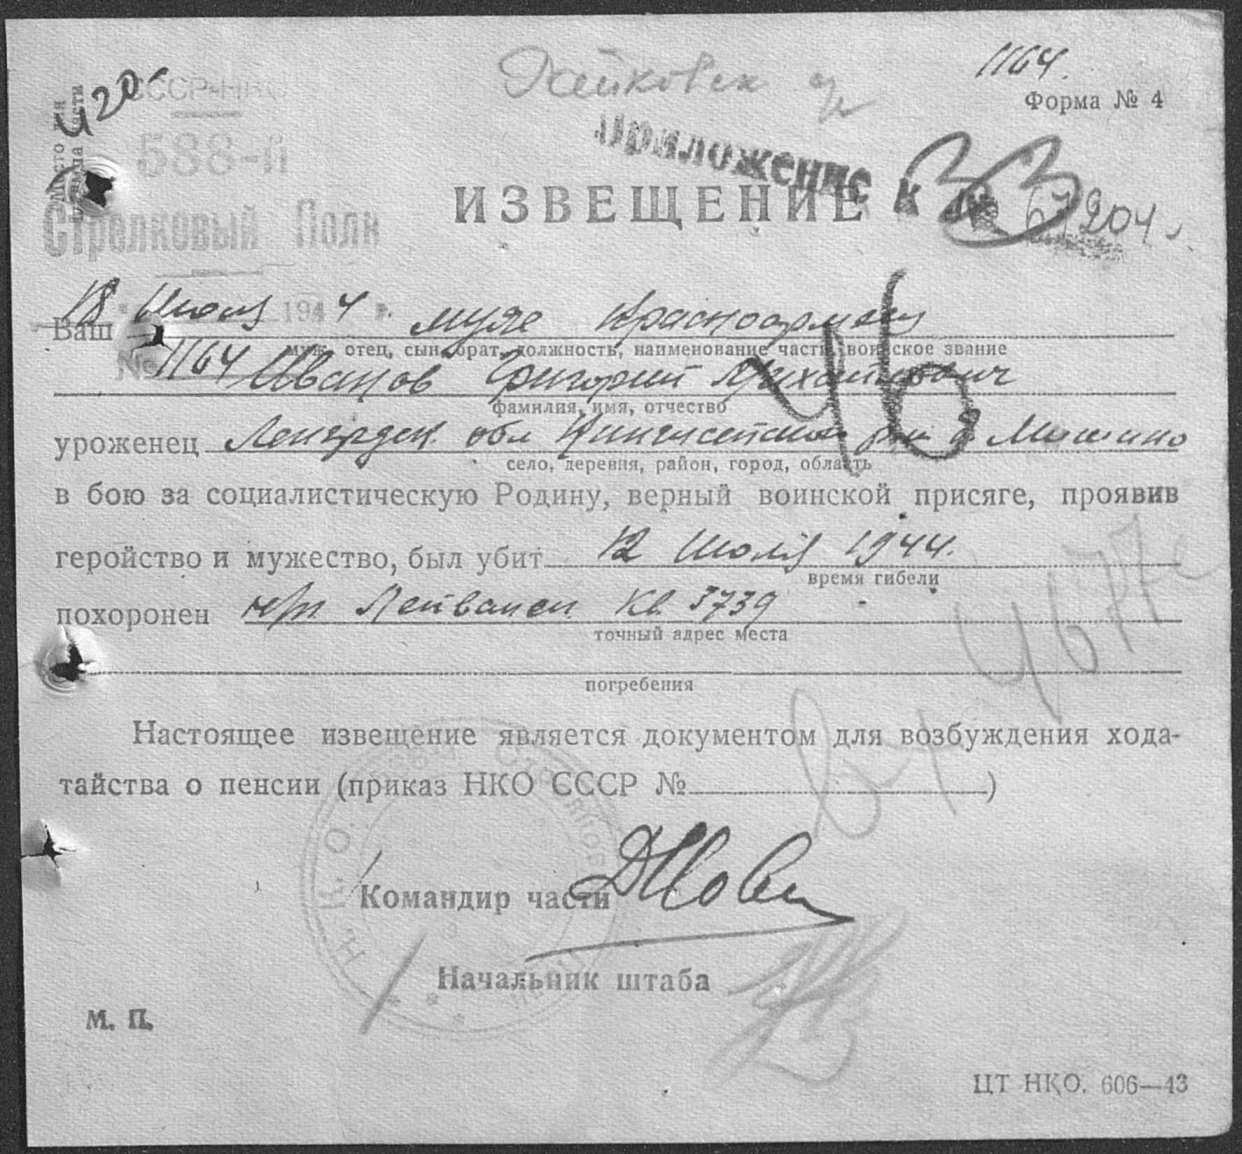 1164.
Форма № 4
420
СССР-НКО
588-й
Стрелковый Полк
Приложение к №
33
67204
ИЗВЕЩЕНИЕ
18 Июля 1944 г.
№ 1164
Ваш муж Красноармеец
муж, отец, сын, брат, должность, наименование части, воинское звание
Иванов Григорий Михайлович
фамилия, имя, отчество
46
уроженец Ленградск. обл Кингисепский р-н д Мишино
село, деревня, район, город, область
в бою за социалистическую Родину, верный воинской присяге, проявив
геройство и мужество, был убит 12 Июля 1944.
время гибели
похоронен Кв 3739
точный адрес места
погребения
4677
Настоящее извещение является документом для возбуждения хода-
тайства о пенсии (приказ НКО СССР № )
Н. К. О.
Командир части
Начальник штаба
М. П.
ЦТ НКО. 606—43